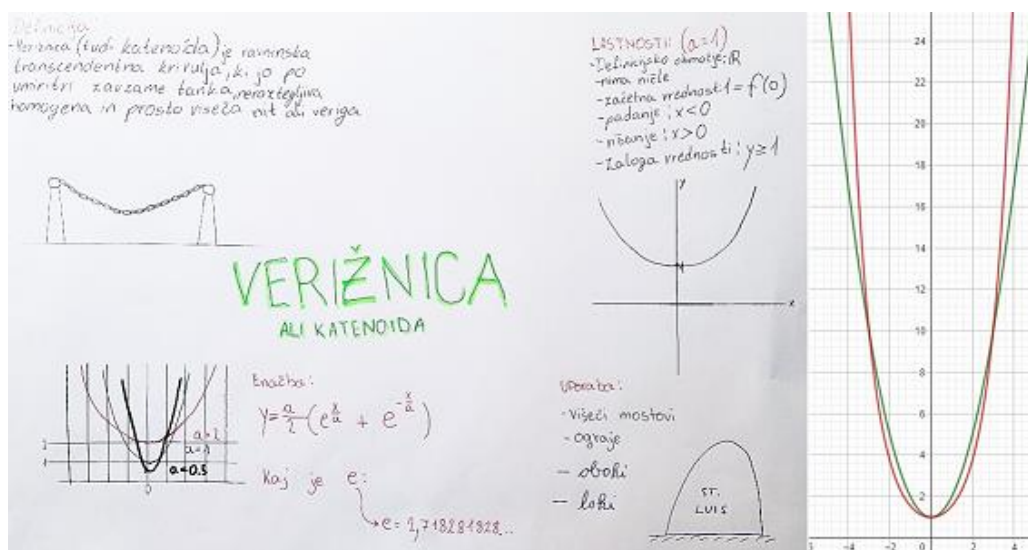 Definicija
-Verižnica (tudi katenoida) je ravninska
transcendentna krivulja, ki jo po
umiritvi zavzame tanka, neraztegljiva
homogena in prosto viseča nit ali veriga
VERIŽNICA
ALI KATENOIDA
a=2
a=1
a=0.5
2
1
0
Enačba:
y=a/2(e^(x/a) + e^(-x/a))
Kaj je e:
e=2,718281828...
LASTNOSTI: (a=1)
-Definicijsko območje: ℝ
-nima ničle
-začetna vrednost: 1=f(0)
-padanje: x<0
-naraščanje: x>0
-Zaloga vrednosti: y≥1
y
1
x
Uporaba:
-viseči mostovi
-ograje
- oboki
- loki
ST.
LUIS
24
22
20
18
16
14
12
10
8
6
4
2
-4
-2
0
2
4